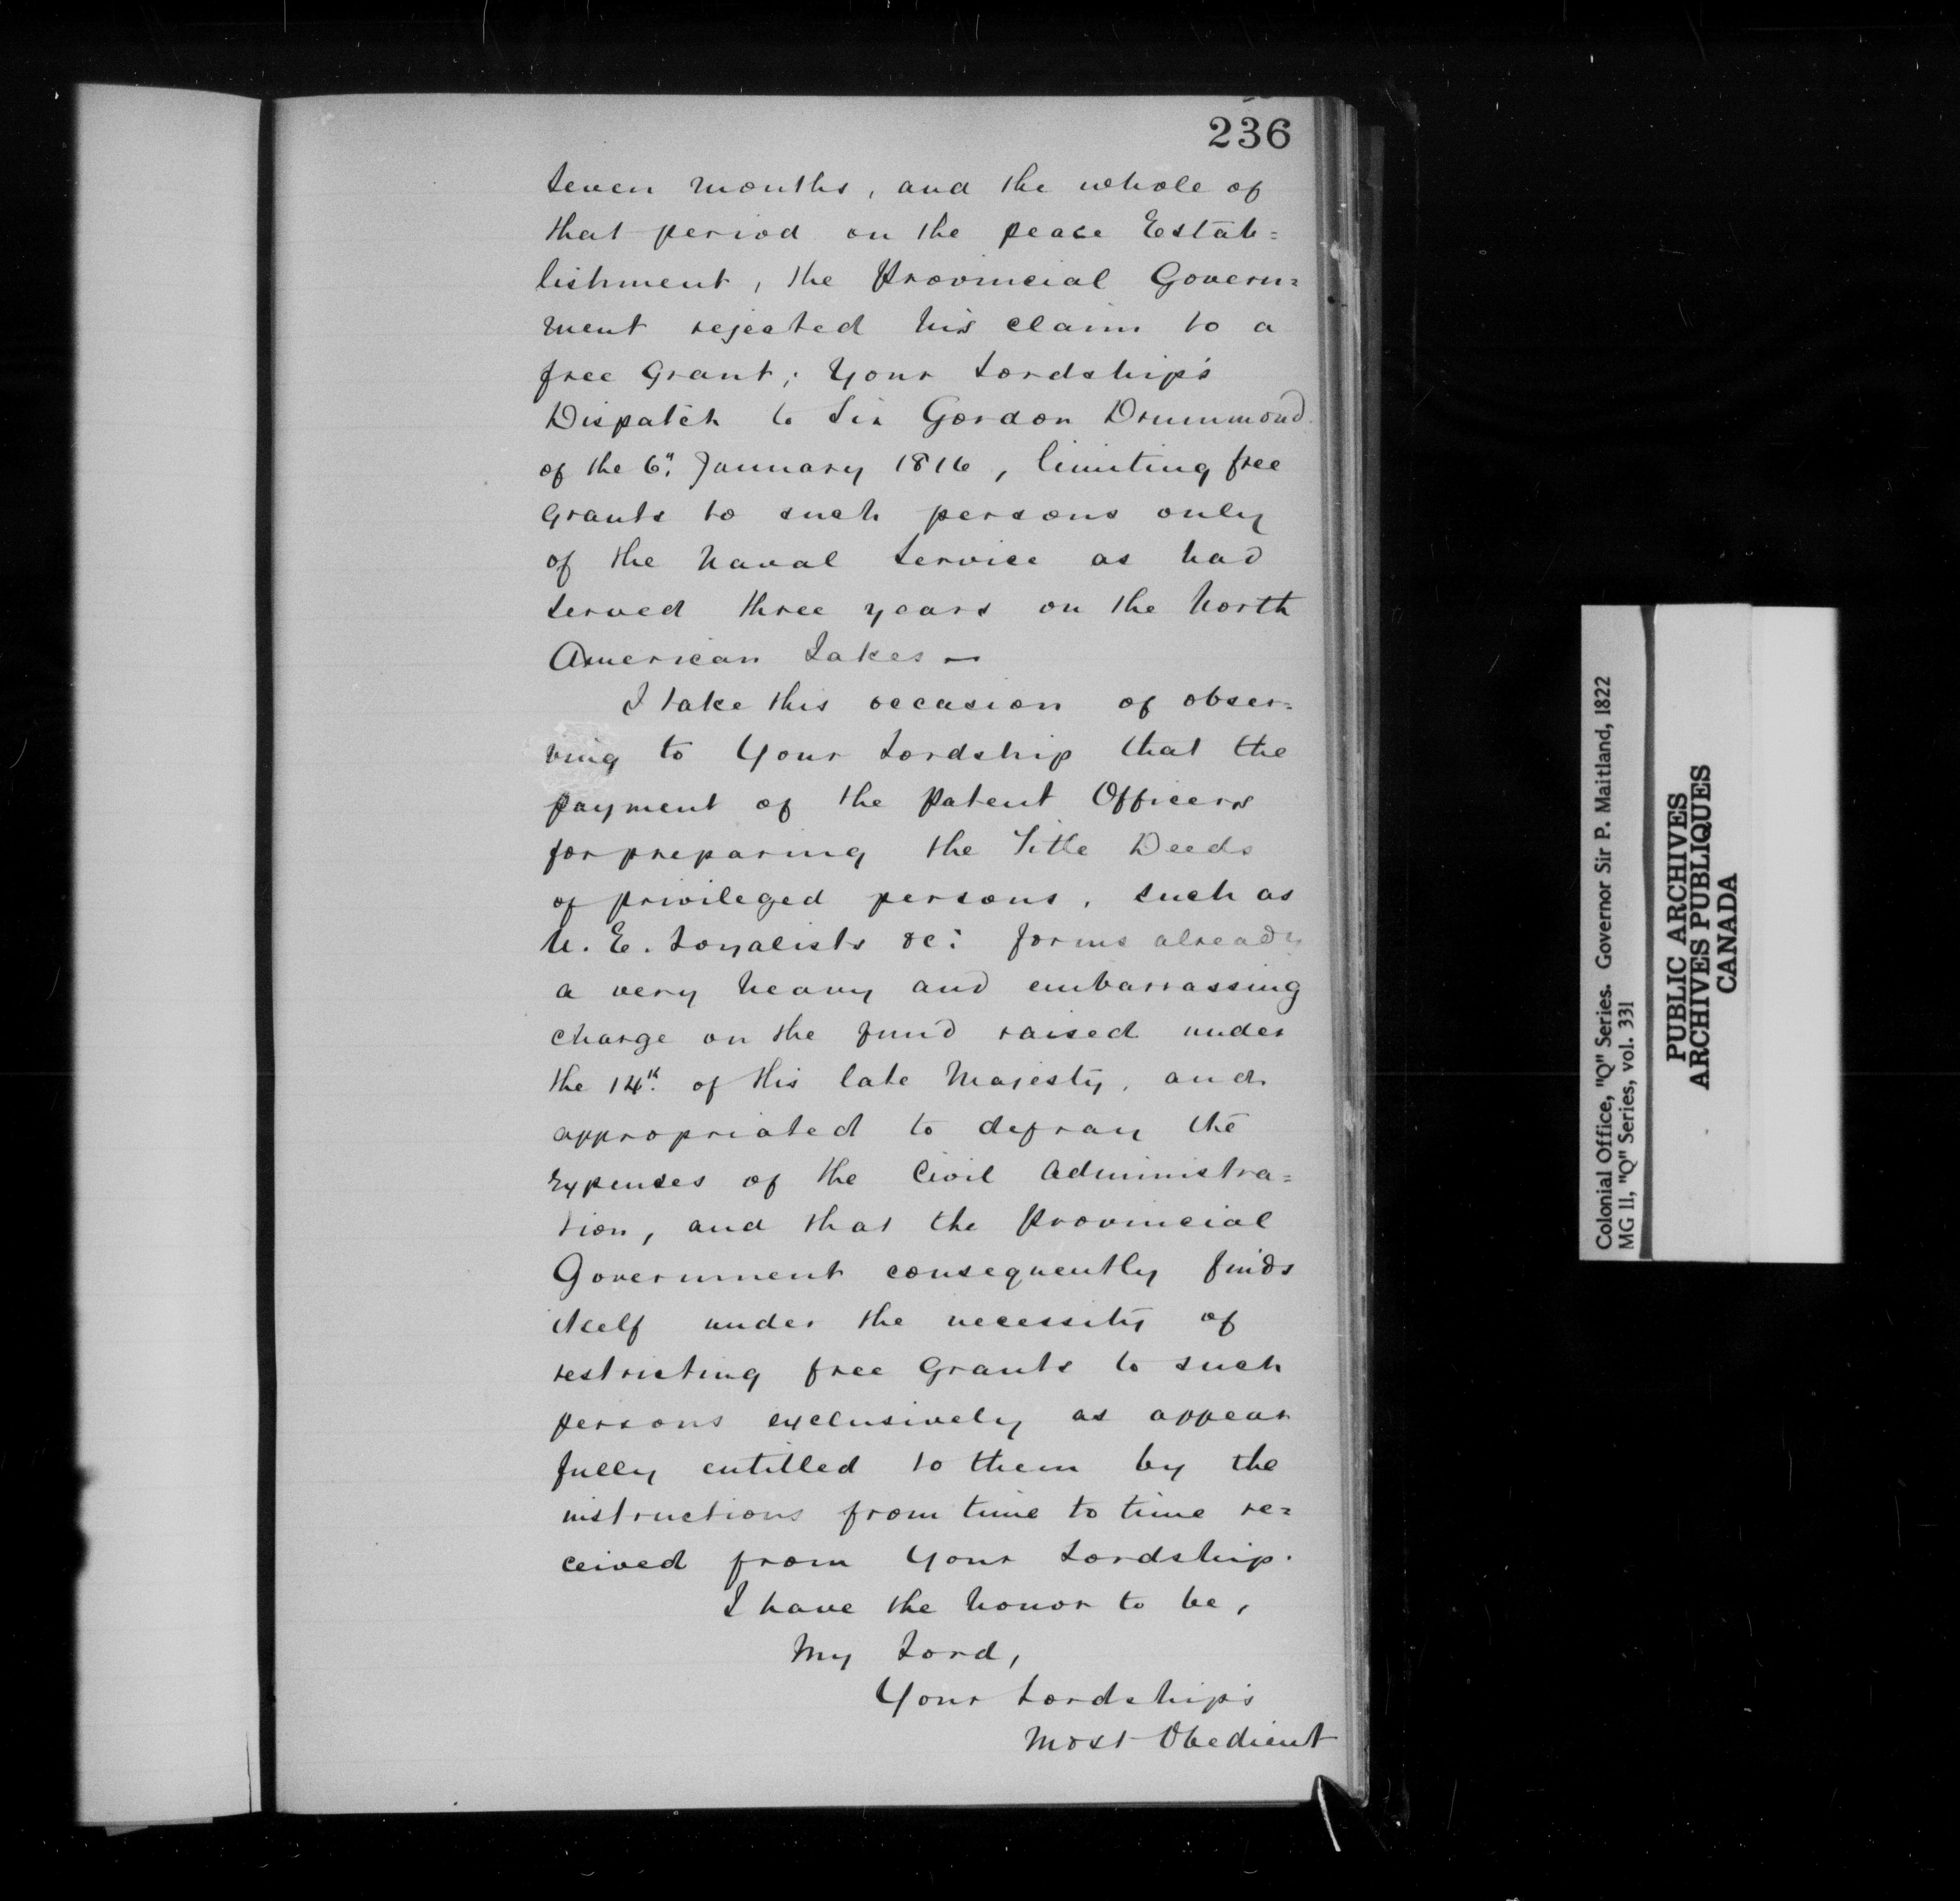 236
seven months, and the whole of
that period on the peace Estab=
lishment, the Provincial Govern=
ment rejected his claim to a
free Grant; Your Lordship's
Dispatch to Sir Gordon Drummond
of the 6th January 1816, limiting free
Grants to such persons only
of the Naval Service as had
served three years on the North
American Lakes —
I take this occasion of obser=
ving to Your Lordship that the
payment of the Patent Officers
for preparing the Title Deeds
of privileged persons, such as
U. E. Loyalists &c: forms already
a very heavy and embarrassing
charge on the fund raised under
the 14th of His late Majesty, and
appropriated to defray the
Expenses of the Civil Administra=
tion, and that the Provincial
Government consequently finds
itself under the necessity of
restricting free Grants to such
persons exclusively as appear
fully entitled to them by the
instructions from time to time re=
ceived from Your Lordship.
I have the honor to be,
My Lord,
Your Lordship's
Most Obedient
Colonial Office, "Q" Series. Governor Sir P. Maitland, 1822
MG 11, "Q" Series, vol. 331
PUBLIC ARCHIVES
ARCHIVES PUBLIQUES
CANADA